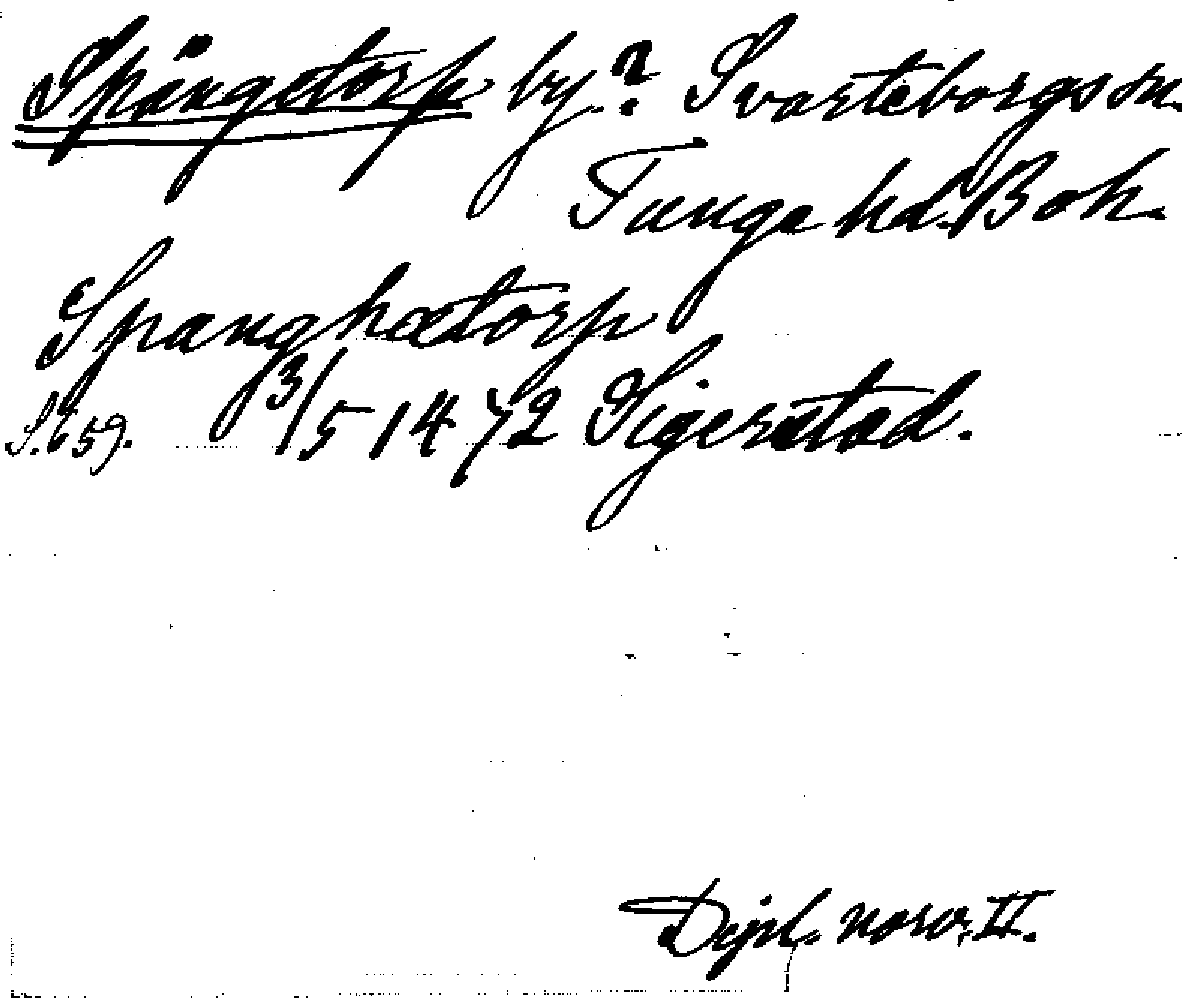 Spängetorp by? Svarteborgs sn.
Tunge hd. Boh.
Spanghætorp
S. 659. 3/5 1472 Sigerstad.
Dipl. norv. II.